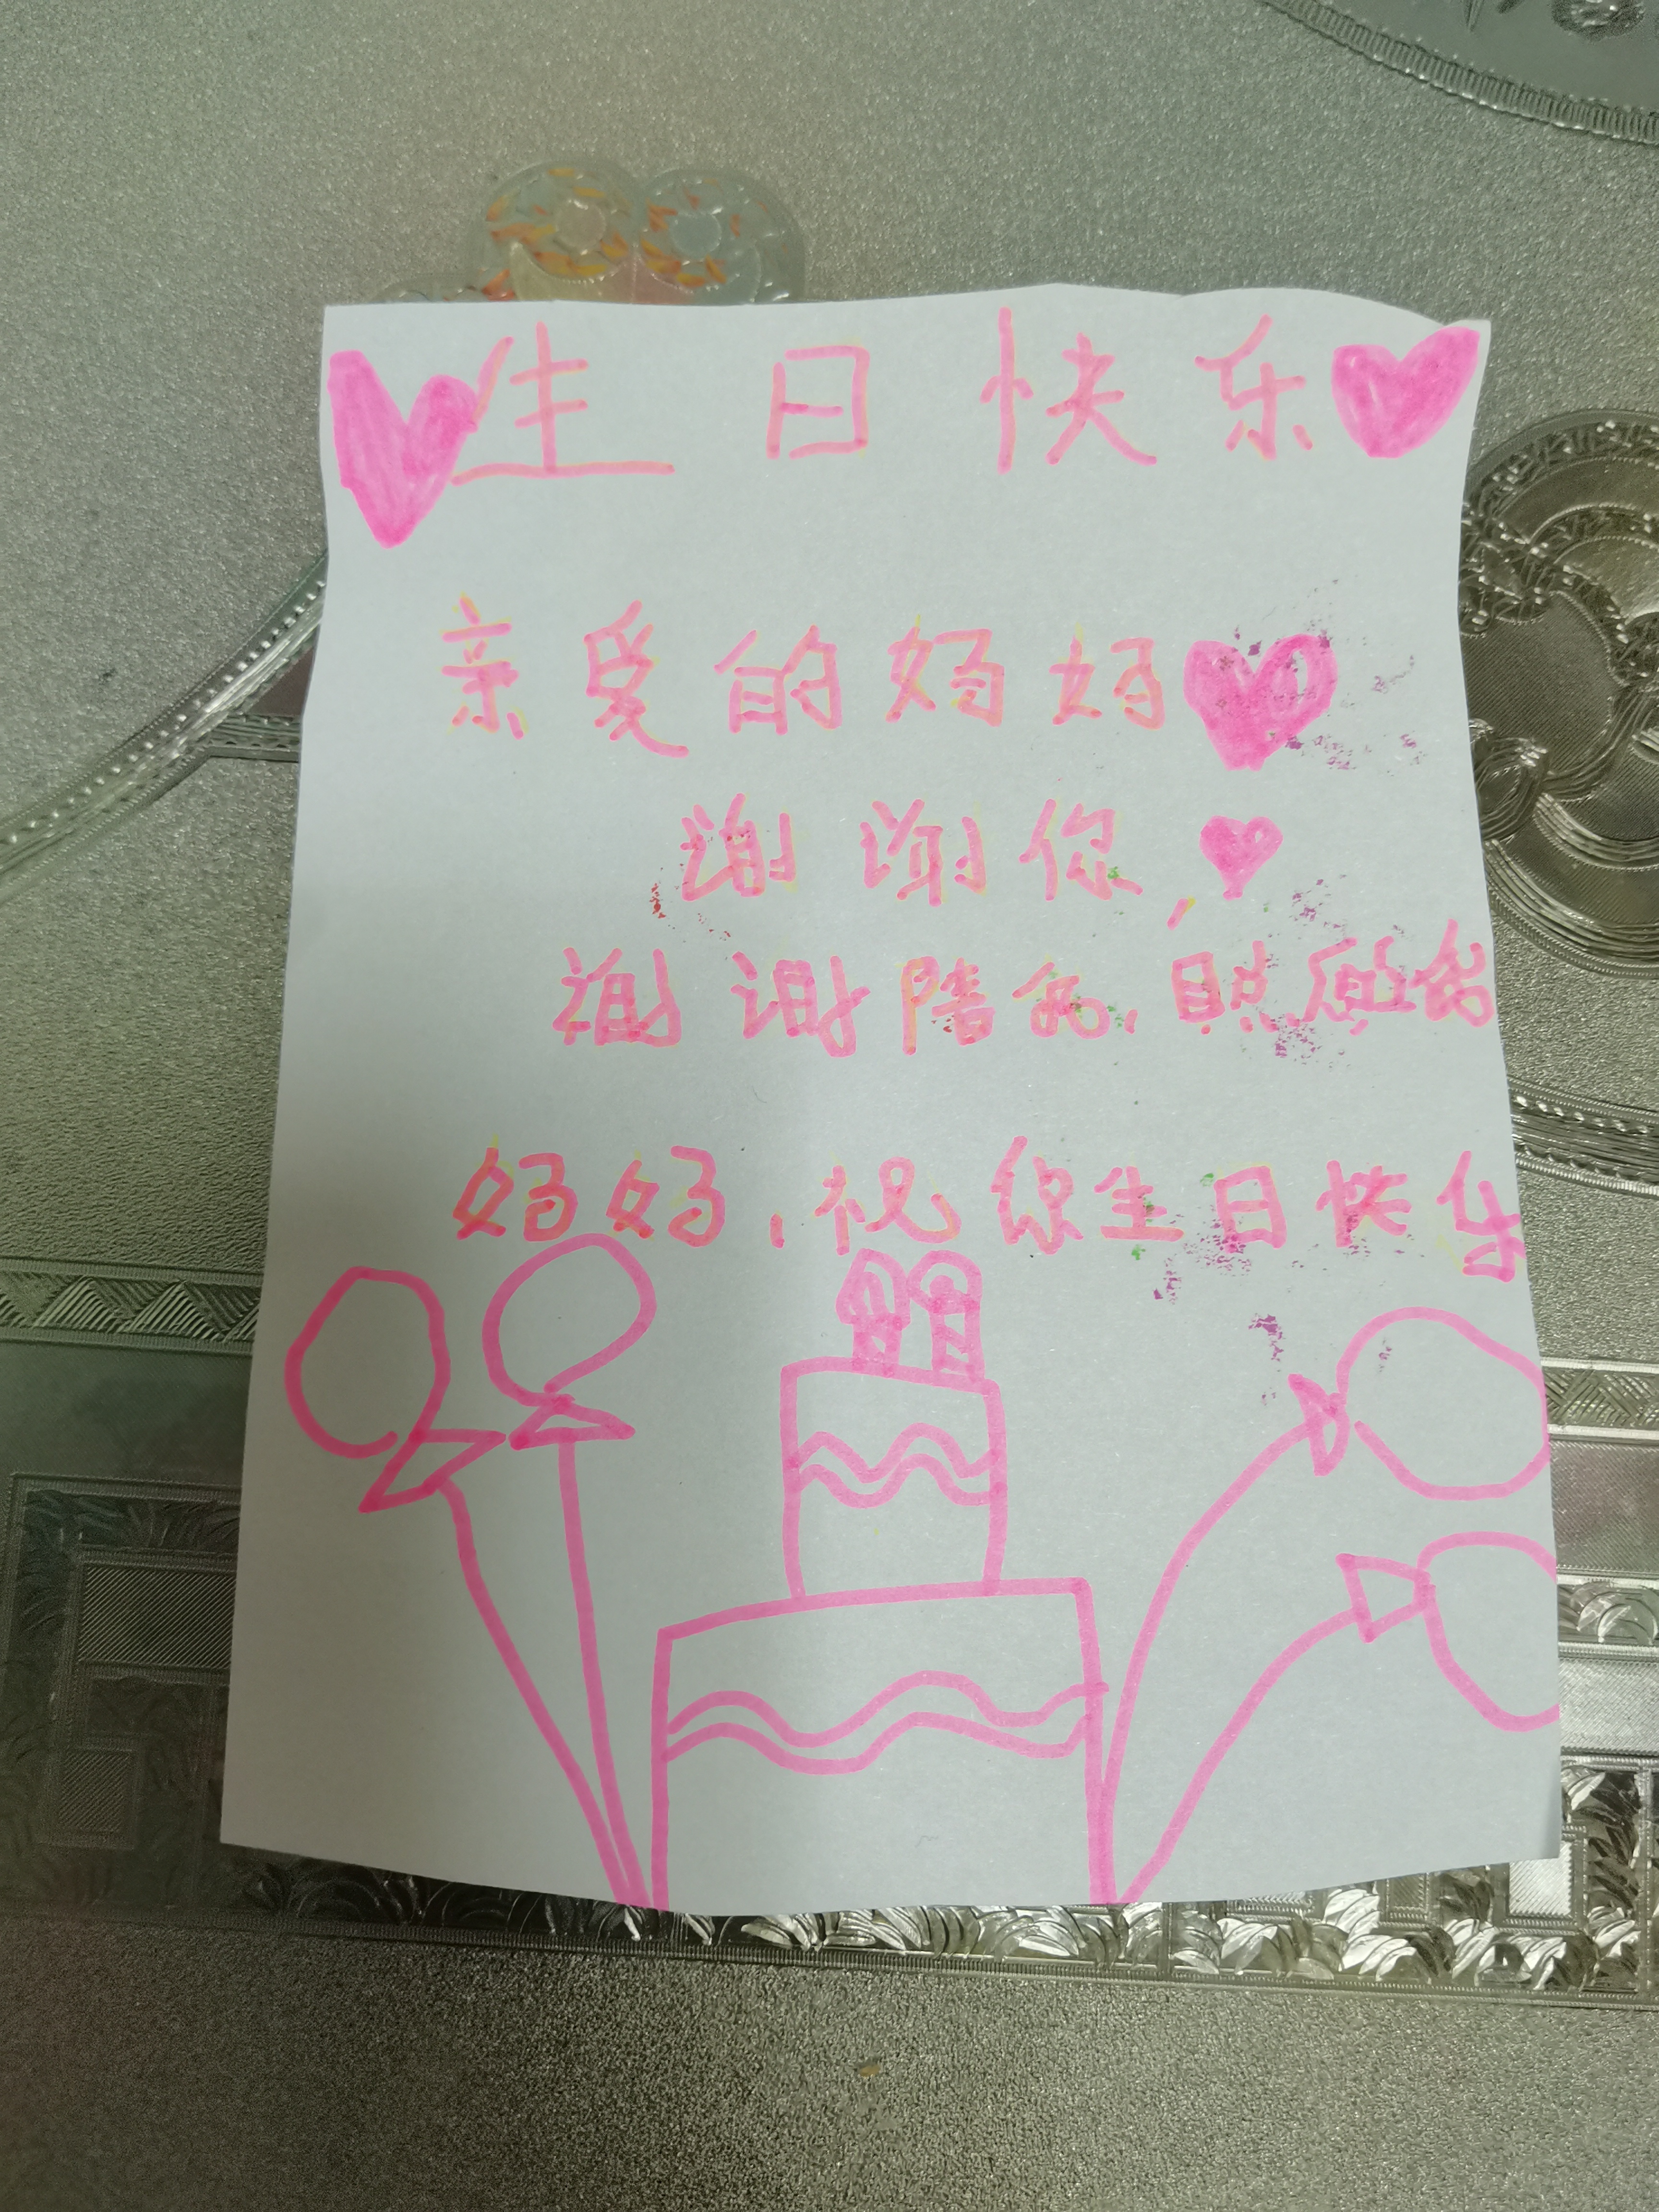 生日快乐
亲爱的妈妈
谢谢你,
谢谢陪我,照顾我
妈妈,祝你生日快乐